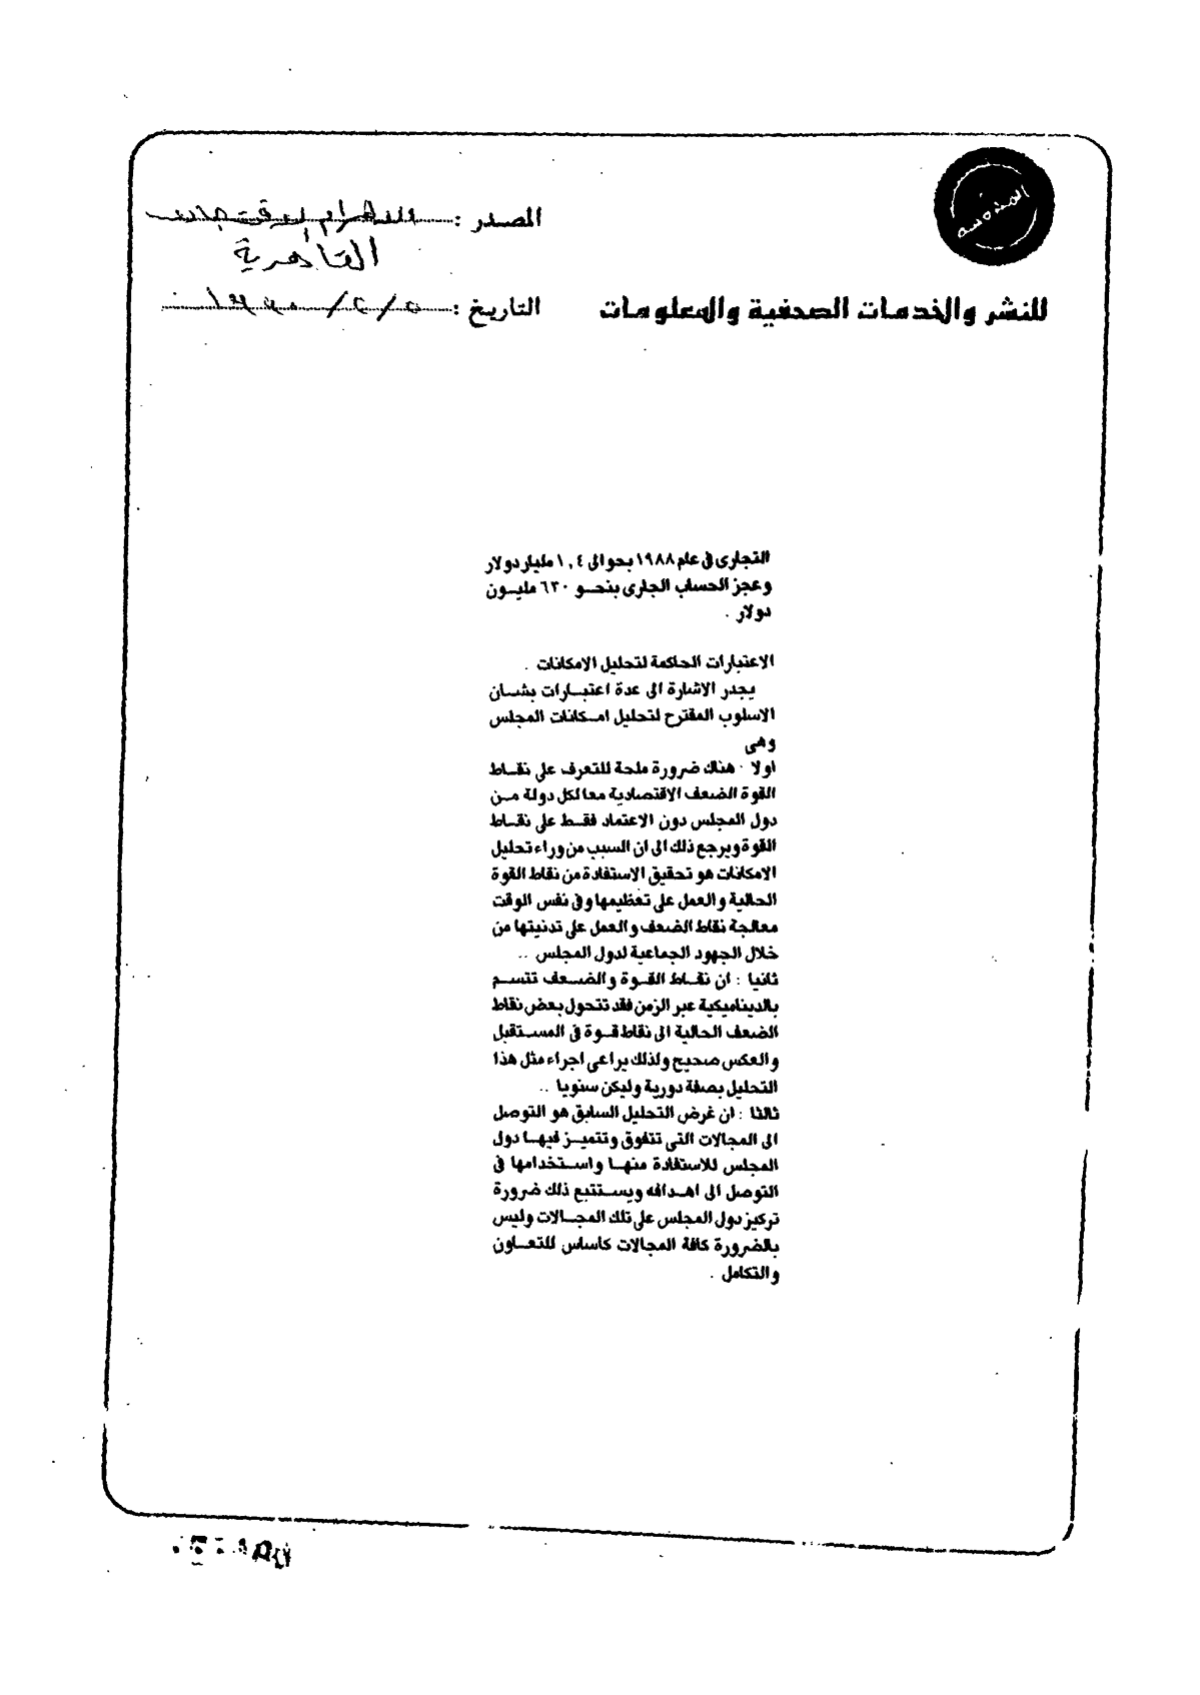 المصدر : الاهرام الاقتصادى
القاهرية
للنشر والخدمات الصحفية والمعلومات
التاريخ : ٥ / ٢ / ١٩٩٠
التجارى فى عام ١٩٨٨ بحوالى ١,٤ مليار دولار
وعجز الحساب الجارى بنحو ٦٣٠ مليون
دولار .
الاعتبارات الحاكمة لتحليل الامكانات .
يجدر الاشارة الى عدة اعتبارات بشان
الاسلوب المقترح لتحليل امكانات المجلس
وهى
اولا . هناك ضرورة ملحة للتعرف على نقاط
القوة الضعف الاقتصادية معا لكل دولة من
دول المجلس دون الاعتماد فقط على نقاط
القوة ويرجع ذلك الى ان السبب من وراء تحليل
الامكانات هو تحقيق الاستفادة من نقاط القوة
الحالية والعمل على تعظيمها وفى نفس الوقت
معالجة نقاط الضعف والعمل على تدنيتها من
خلال الجهود الجماعية لدول المجلس ..
ثانيا : ان نقاط القوة والضعف تتسم
بالديناميكية عبر الزمن فقد تتحول بعض نقاط
الضعف الحالية الى نقاط قوة فى المستقبل
والعكس صحيح ولذلك يراعى اجراء مثل هذا
التحليل بصفة دورية وليكن سنويا ..
ثالثا : ان غرض التحليل السابق هو التوصل
الى المجالات التى تتفوق وتتميز فيها دول
المجلس للاستفادة منها واستخدامها فى
التوصل الى اهدافه ويستتبع ذلك ضرورة
تركيز دول المجلس على تلك المجالات وليس
بالضرورة كافة المجالات كاساس للتعاون
والتكامل .